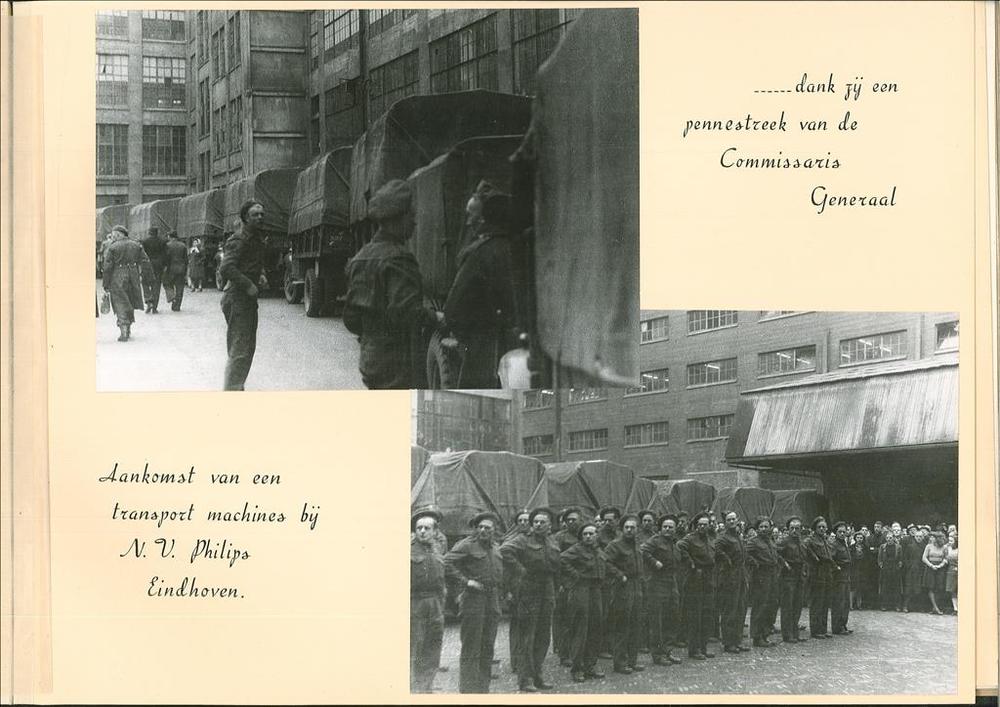 ......dank zij een
pennestreek van de
Commissaris
Generaal
Aankomst van een
transport machines bij
N. V. Philips
Eindhoven.